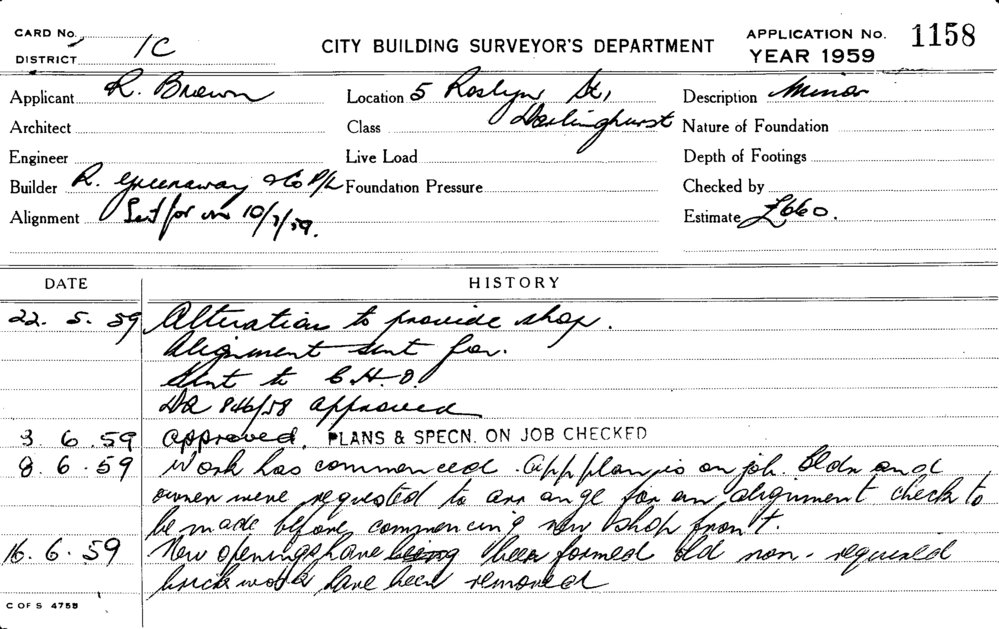 CARD No.
DISTRICT 1C
CITY BUILDING SURVEYOR'S DEPARTMENT
APPLICATION No. 1158
YEAR 1959
Applicant R. Brown
Location 5 Roslyn St,
Description Minor
Architect
Class Darlinghurst
Nature of Foundation
Engineer
Live Load
Depth of Footings
Builder R. Greenaway & Co P/L
Foundation Pressure
Checked by
Alignment Sent for 10/7/59.
Estimate £660.
DATE HISTORY
22. 5. 59 Alteration to provide shop.
Alignment sent for.
Sent to C.H.O.
DA 846/58 approved
3. 6. 59 approved. PLANS & SPECN. ON JOB CHECKED
8. 6. 59 Work has commenced. App plan is on job. Bldr and
owner were requested to arrange for an alignment check to
be made before commencing new shop front.
16. 6. 59 New openings have being been formed old non-required
brickwork have been removed
C OF S 475B